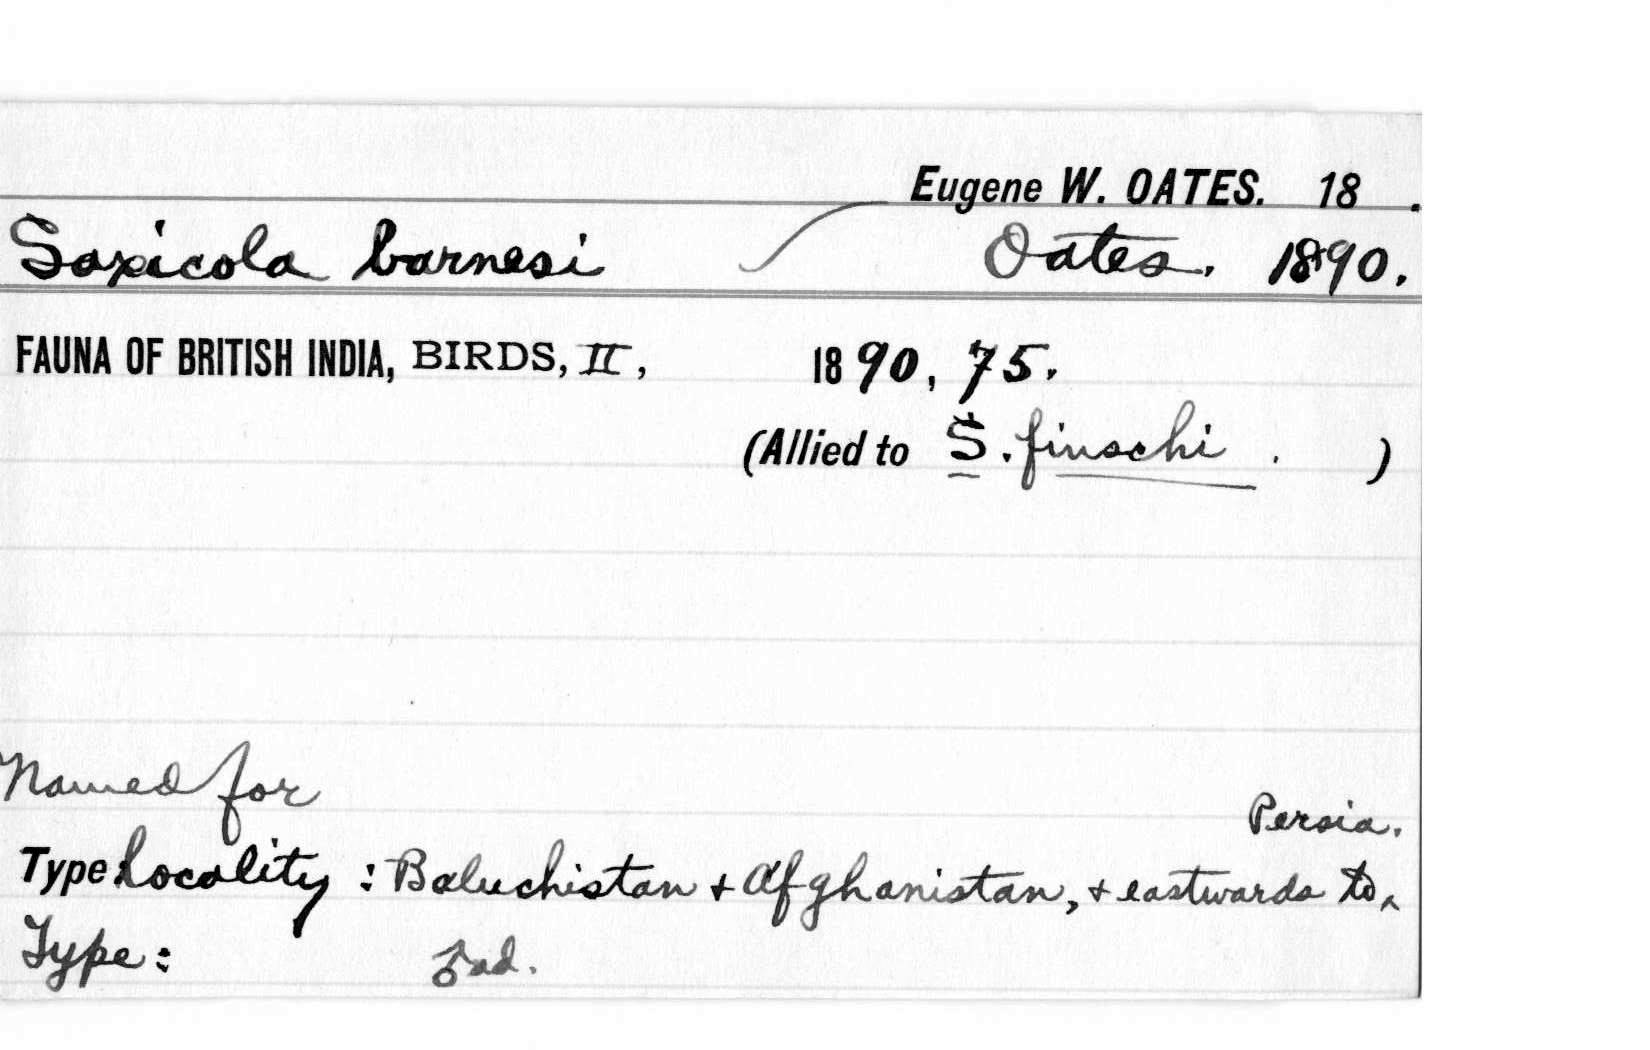 Eugene W. OATES. 18 .
Saxicola barnesi Oates. 1890.
FAUNA OF BRITISH INDIA, BIRDS, II, 1890, 75.
(Allied to S. finschi . )
Named for
Persia.
Type Locality : Baluchistan + Afghanistan, + eastwards to ‸
Type : ♂ ad.